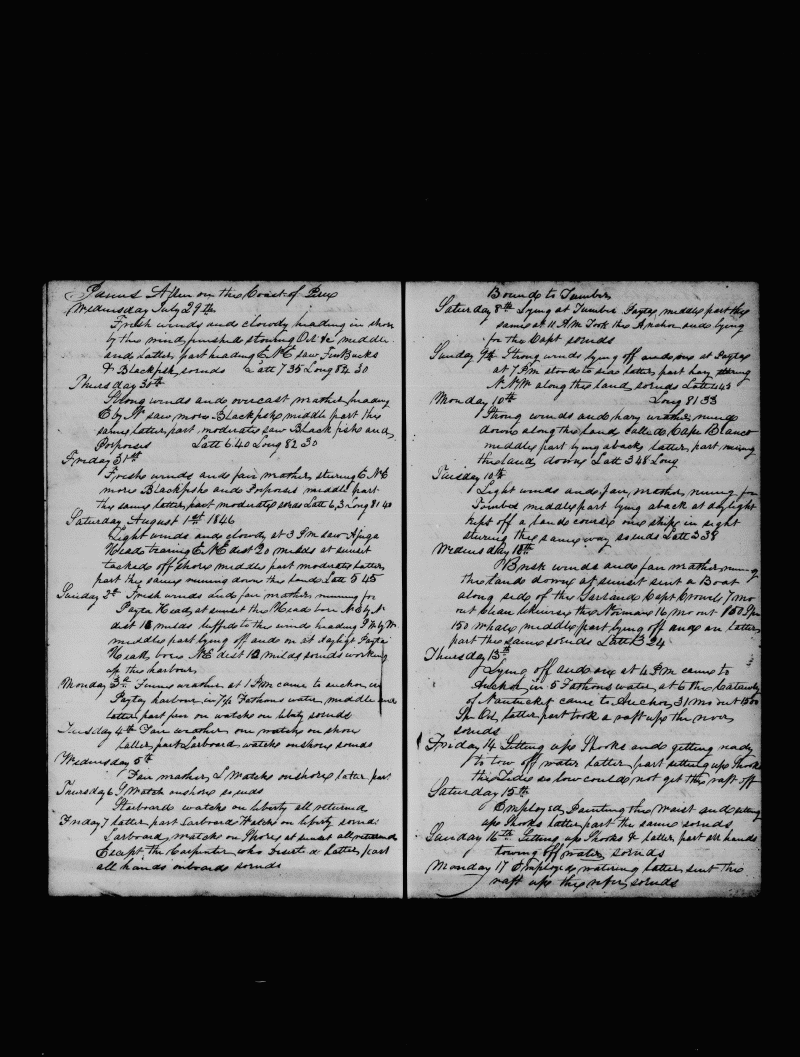 on the Coast of Peru
Wednesday July 29th
Fresh winds and clowdy heading in shore
by the wind finished stowing Oil &c middle
and Latter part heading E N E saw Fin Backs
& Blackfish sounds Latt 7 35 Long 82 30
Thursday 30th
Strong winds and overcast wather heading
E by N saw more Blackfish middle part the
same latter part moderate saw Black fish and
Porposes Latt 6 40 Long 82 30
Friday 31st
Fresh winds and fair wather stering E N E
more Blackfish and Porposes middle part
the same latter part moderate Latt 6,3 Long 81 40
Saturday August 1st 1846
Light winds and clowdy at 3 PM saw
Head E N E dist 20 milds at sunset
tacked off shore middle part moderate latter
part the same running down the land Latt 5 45
Sunday 2d Fresh winds and fair wather running for
Payta Head at sunset the Head bore N E by N
dist 18 milds luffed to the wind heading
middle part lying off and on at daylight Payta
Head bore N E dist 12 milds sounds working
up the harbour
Monday 3d wather at 1 PM came to anchor in
Payta harbour in 7½ Fathoms water middle and
latter part on watch on liberty sounds
Tuesday 4th Fair wather one watch on shore
latter part Larboard watch on shore sounds
Wednesday 5th
Fair wather L Watch on shore latter part
Thursday 6 Watch on shore sounds
Starboard watch on liberty all returned
Friday 7 latter part Larboard Watch on liberty sounds
Larboard watch on Shore at sunset all returned
Except the Carpenter who latter part
all hands onboard sounds
Bound to Tumbes
Saturday 8th Lying at Payta middle part the
same at 11 AM Took the Anchor and lying
for the Capt sounds
Sunday 9th Strong winds lying off and on at Payta
at 7 PM stood to sea latter part hazy
N N W along the land sounds Latt 4 43
Monday 10th Long 81 33
Strong winds and hazy wather running
down along the land called Cape Blanco
middle part lying aback latter part running
the land down Latt 3 48 Long
Tuesday
Light winds and fair wather running for
Tumbes middle part lying aback at daylight
kept off a lands course one ship in sight
stering the same way sounds Latt 3 38
Wednesday
Brisk winds and fair wather running
the land down at sunset sent a Boat
along side of the Garland Capt Crowel 7 mo
out Clean likewise the Norman 16 mo out 150 Sp
150 whale middle part lying off and on latter
part the same sounds Latt 3 24
Thursday 13th
Lying off and on at 4 PM came to
Anchor in 5 Fathoms water at 6 the Catawba
of Nantucket came to Anchor 31 mo out 1500
Sp Oil latter part took a raft up the river
sounds
Friday 14 Setting up Shooks and getting ready
to tow off water latter part setting up Shooks
the Tides so low could not get the raft off
Saturday 15th
Employed Painting the Waist and setting
up Shooks latter part the same sounds
Sunday 16th Setting up Shooks & latter part all hands
towing off water sounds
Monday 17 Employed watering latter sent the
raft up the river sounds